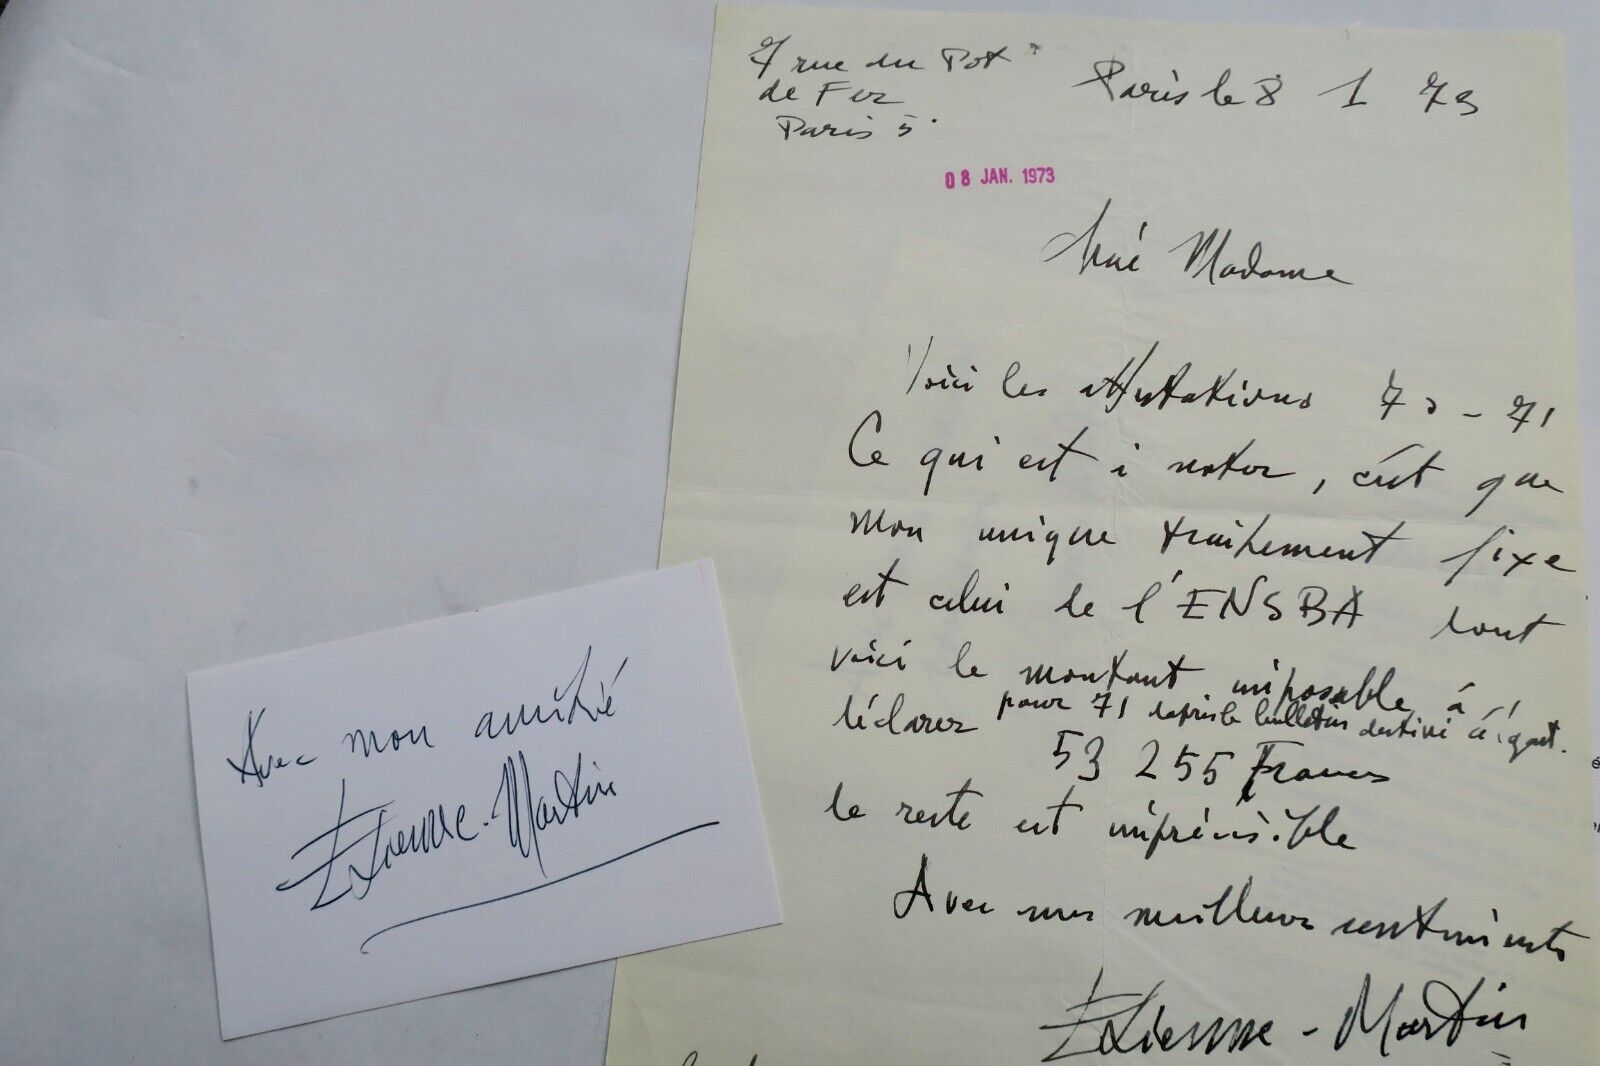 7 rue du Pot
de Fer
Paris 5
Paris le 8 1 73
08 JAN. 1973
Chère Madame
Voici les attestations 70 - 71
Ce qui est à noter, c'est que
mon unique traitement fixe
est celui de l'ENSBA dont
voici le montant imposable à
déclarer pour 71 d'après le bulletin destiné à
53 255 Francs
le reste est imprévisible
Avec mes meilleurs sentiments
Etienne-Martin
Avec mon amitié
Etienne-Martin